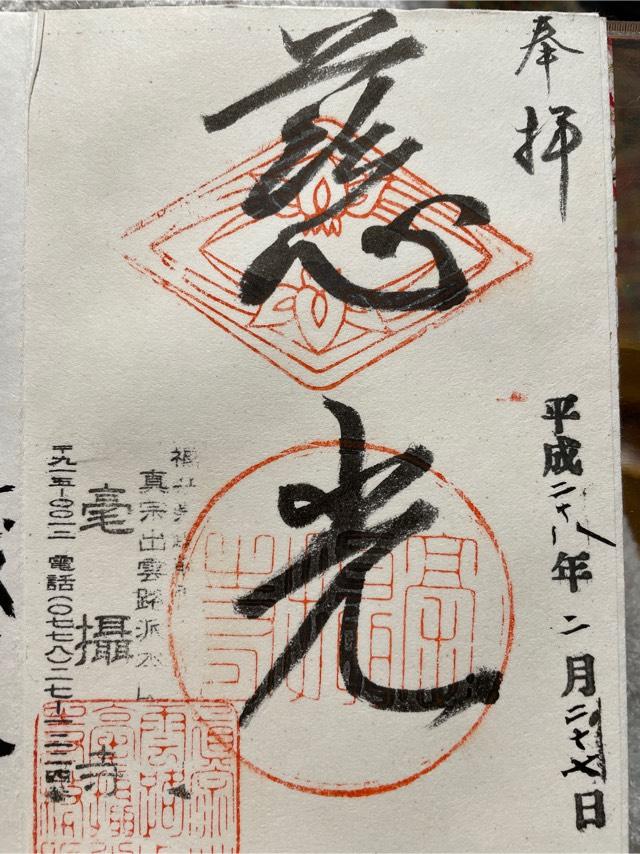 奉拝
平成二十八年二月二十七日
慈光
毫攝寺
真宗出雲路派本山
毫攝寺
〒九一五-〇〇一二 電話(〇七七八)二七-一二二四